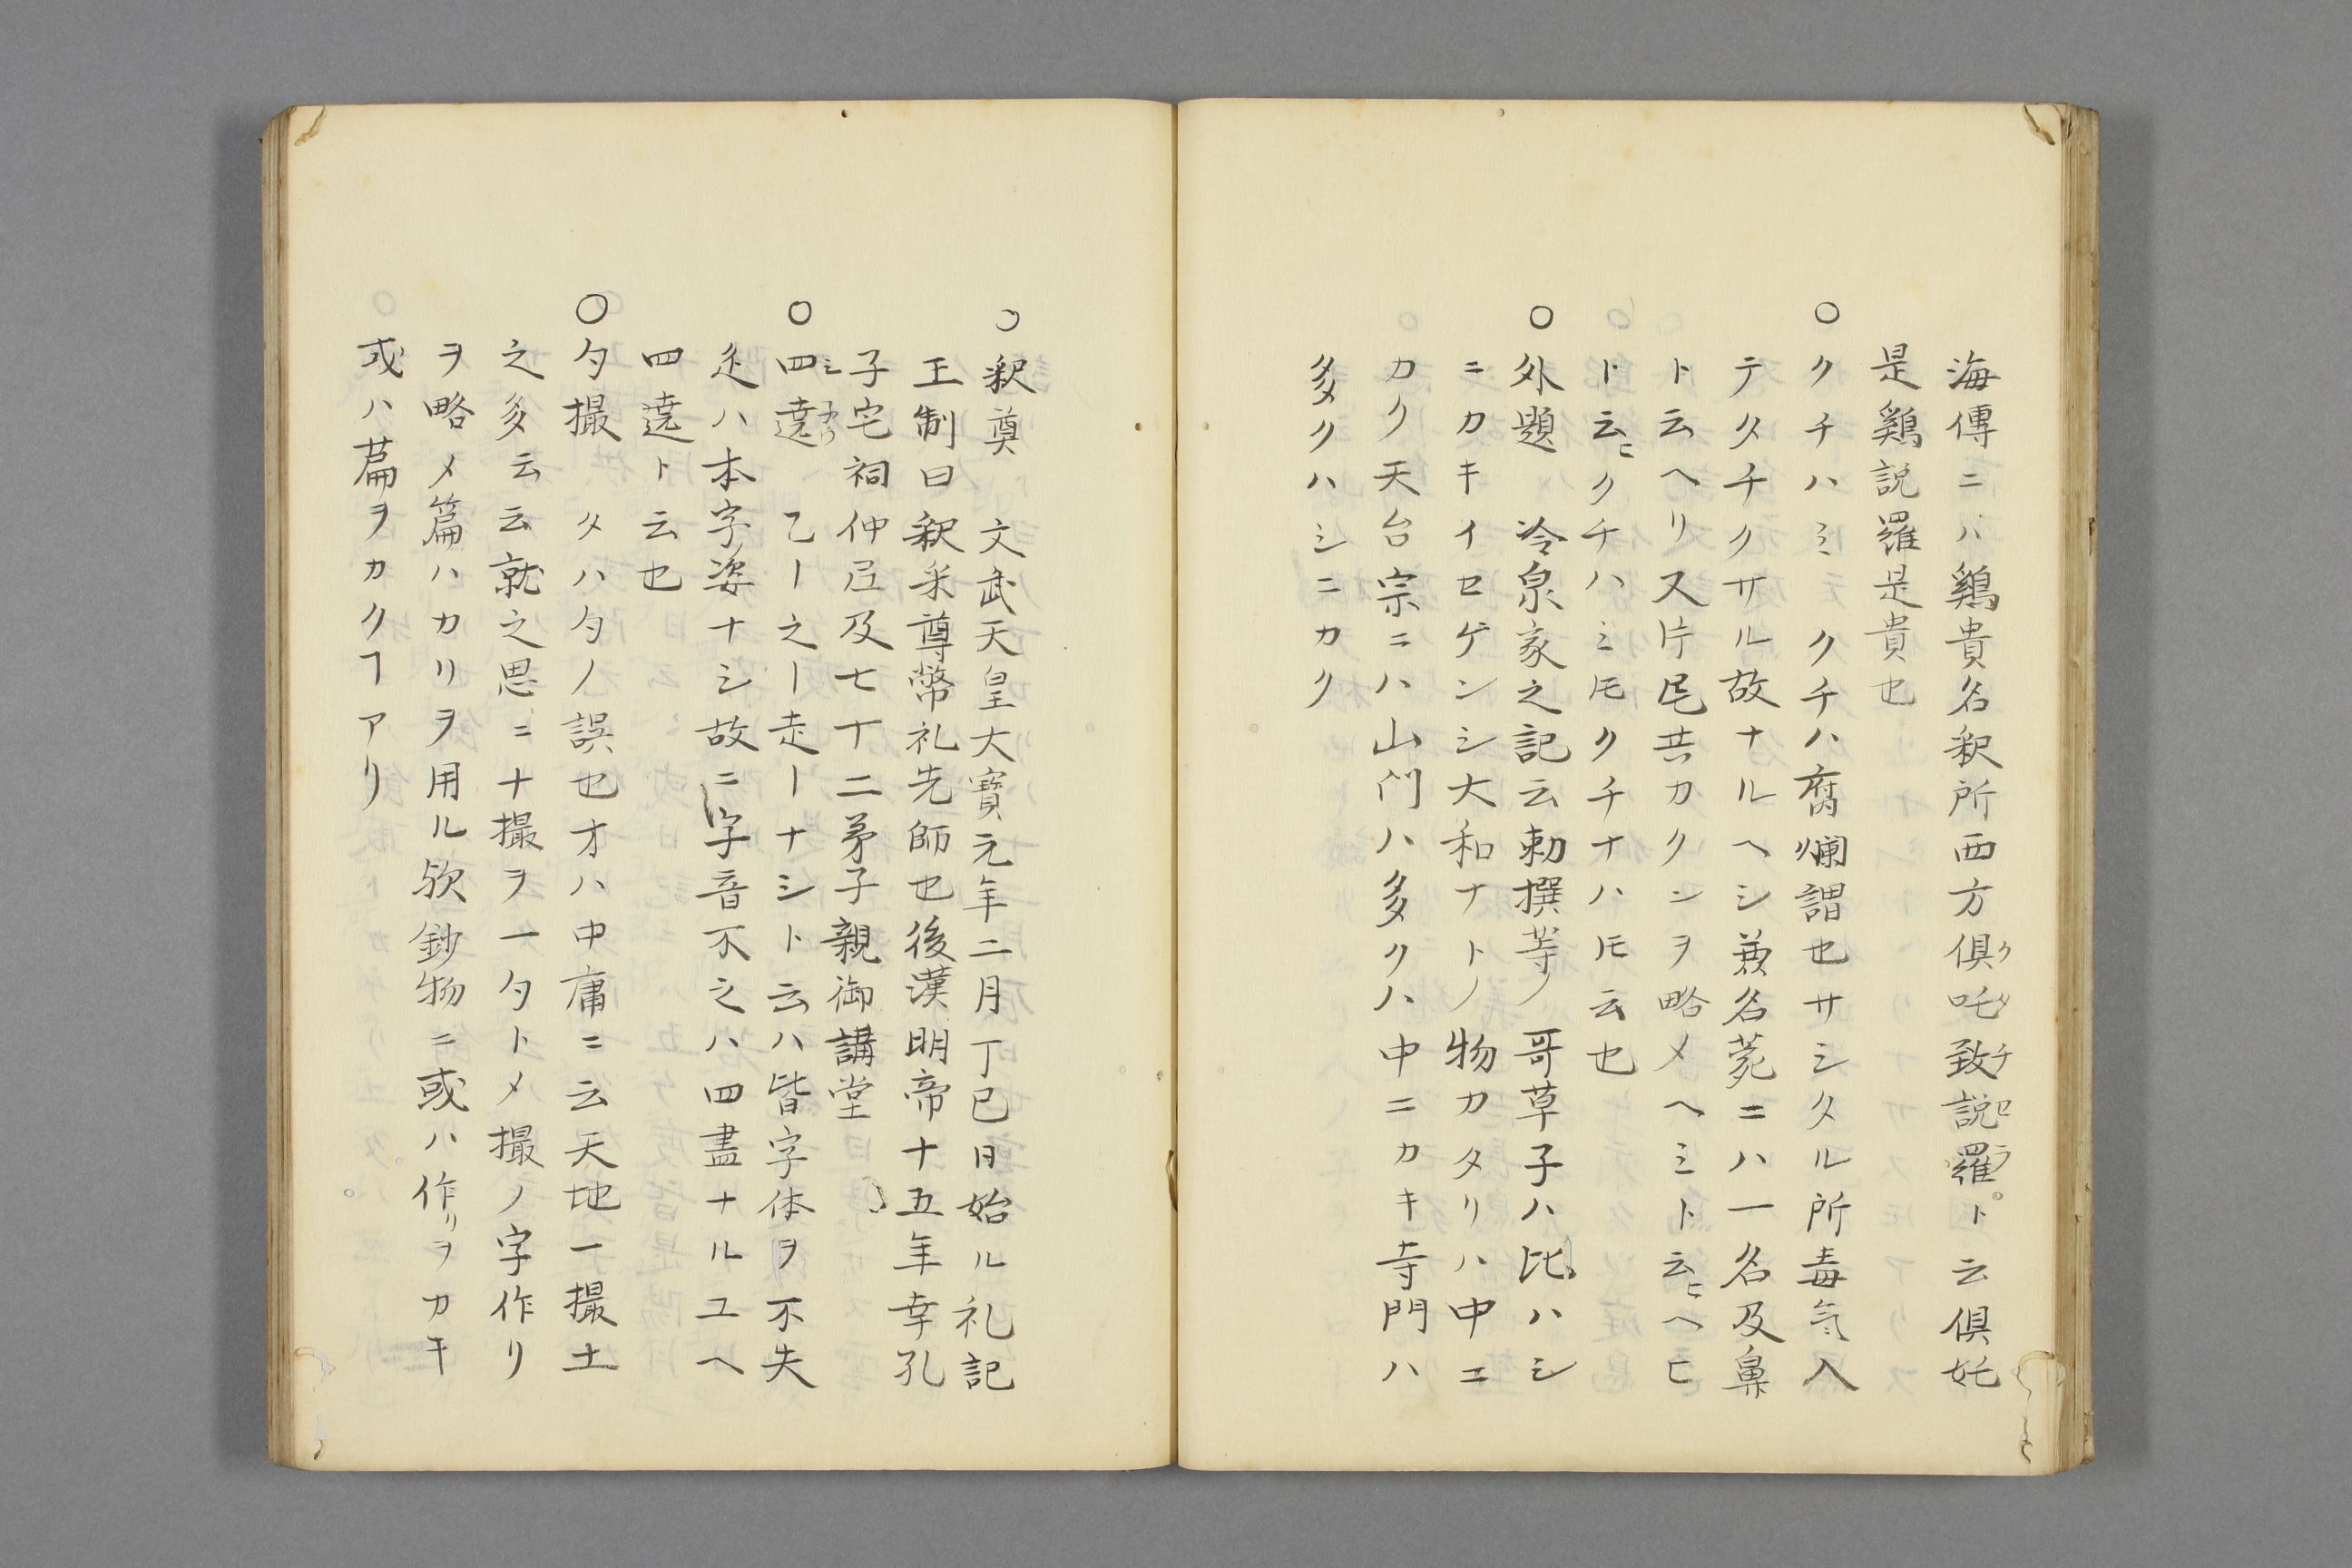 海傳ニハ鷄貴名釈所西方倶吒致説羅ト云倶吒
是鷄説羅是貴也
○クチハミテ クチハ腐爛謂也サシタル所毒気入
テタチクサル故ナルヘシ兼名菀ニハ一名及鼻
ト云ヘリ又片㞍共カクシヲ略メヘミト云ニヘヒ
ト云ニクチハミモクチナハモ云也
○外題 冷泉家之記云勅撰等ノ哥草子ハ比ハシ
ニカキイセゲンシ大和ナトノ物カタリハ中ニ
カク天台宗ニハ山門ハ多クハ中ニカキ寺門ハ
多クハシニカク
○釈奠 文武天皇大寳元年二月丁巳日始ル礼記
王制曰釈釆尊幣礼先師也後漢明帝十五年幸孔
子宅祠仲𡰱及七十二弟子親御講堂
○四遶 乙ー之ー走ーナシト云ハ皆字体ヲ不失
辵ハ本字姿ナシ故ニ字音不之ハ四盡ナルユヘ
四遶ト云也
○勺撮 タハ勺ノ誤也才ハ中庸ニ云天地一撮土
之多云云就之思ニ十撮ヲ一勺トメ撮ノ字作リ
ヲ略メ篇ハカリヲ用ル欤鈔物ニ或ハ作リヲカキ
或ハ篇ヲカクヿアリ